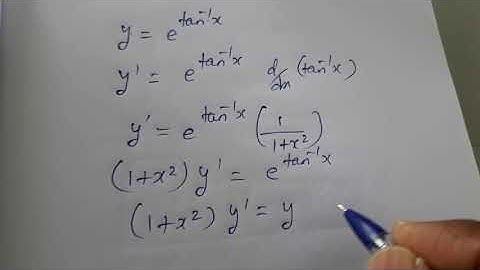 y = e^{tan⁻¹x}
y' = e^{tan⁻¹x} d/dx (tan⁻¹x)
y' = e^{tan⁻¹x} (1/(1+x²))
(1+x²) y' = e^{tan⁻¹x}
(1+x²) y' = y